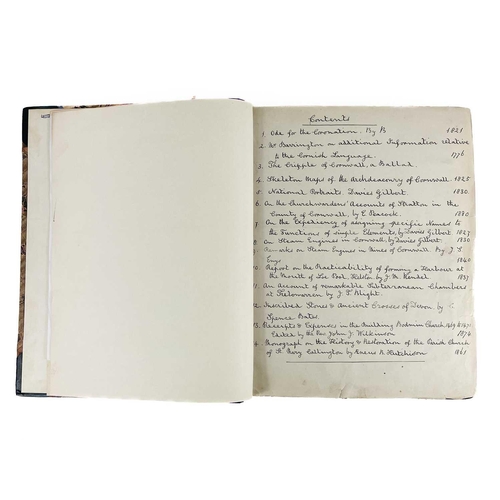 Contents
1. Ode for the Coronation. By 1821
2. Mr Barrington on additional Information relative
to the Cornish Language. 1776
3. The Cripple of Cornwall, a Ballad.
4. Skeleton Maps of the Archdeaconry of Cornwall. 1825
5. National Portraits. Davies Gilbert 1830.
6. On the Churchwardens' Accounts of Stratton in the
County of Cornwall. by E. Peacock. 1880
7. On the Expediency of assigning specific Names to
the Functions of simple Elements, by Davies Gilbert 1827
8. On Steam Engines in Cornwall. by Davies Gilbert 1830
Remarks on Steam Engines in Mines of Cornwall. By J. S.
Enys 1840
10. Report on the Practicability of forming a Harbour at
the Mouth of Loe Pool, Helston by J. M. Rendel 1837
11. An account of remarkable Subterranean Chambers
at Trelowarren by J. T. Blight.
12. Inscribed Stones & Ancient Crosses of Devon. by C.
Spence Bates.
13. Receipts & Expenses in the Building Bodmin Church 1469 to 1471
Edited by the Rev John J. Wilkinson 1874
14. Monograph on the History & Restoration of the Parish Church
of St Mary Callington by A. Hutchison 1861